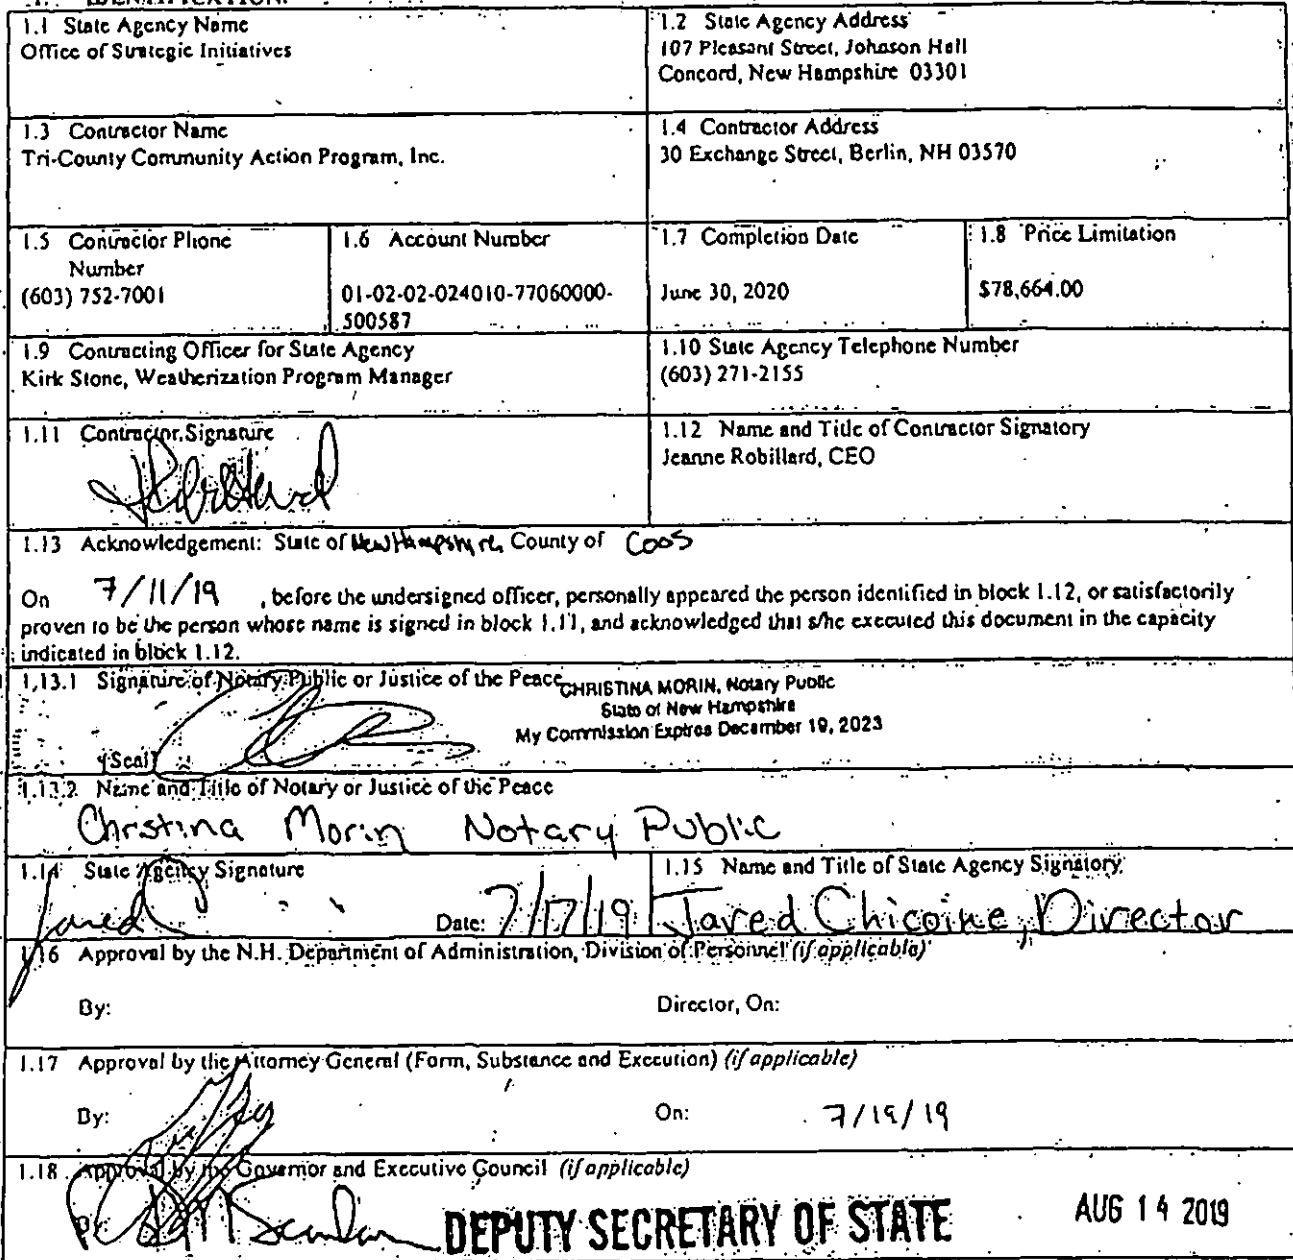 1. IDENTIFICATION.
1.1 State Agency Name
Office of Strategic Initiatives
1.2 State Agency Address
107 Pleasant Street, Johnson Hall
Concord, New Hampshire 03301
1.3 Contractor Name
Tri-County Community Action Program, Inc.
1.4 Contractor Address
30 Exchange Street, Berlin, NH 03570
1.5 Contractor Phone
Number
(603) 752-7001
1.6 Account Number
01-02-02-024010-77060000-
500587
1.7 Completion Date
June 30, 2020
1.8 Price Limitation
$78,664.00
1.9 Contracting Officer for State Agency
Kirk Stone, Weatherization Program Manager
1.10 State Agency Telephone Number
(603) 271-2155
1.11 Contractor Signature
1.12 Name and Title of Contractor Signatory
Jeanne Robillard, CEO
1.13 Acknowledgement: State of New Hampshire, County of Coos
On 7/11/19 , before the undersigned officer, personally appeared the person identified in block 1.12, or satisfactorily
proven to be the person whose name is signed in block 1.11, and acknowledged that s/he executed this document in the capacity
indicated in block 1.12.
1.13.1 Signature of Notary Public or Justice of the Peace
CHRISTINA MORIN, Notary Public
State of New Hampshire
My Commission Expires December 19, 2023
[Seal]
1.13.2 Name and Title of Notary or Justice of the Peace
Christina Morin Notary Public
1.14 State Agency Signature
Jared
Date: 7/17/19
1.15 Name and Title of State Agency Signatory
Jared Chicoine, Director
1.16 Approval by the N.H. Department of Administration, Division of Personnel (if applicable)
By:
Director, On:
1.17 Approval by the Attorney General (Form, Substance and Execution) (if applicable)
By:
On: 7/19/19
1.18 Approval by the Governor and Executive Council (if applicable)
By:
DEPUTY SECRETARY OF STATE
AUG 14 2019